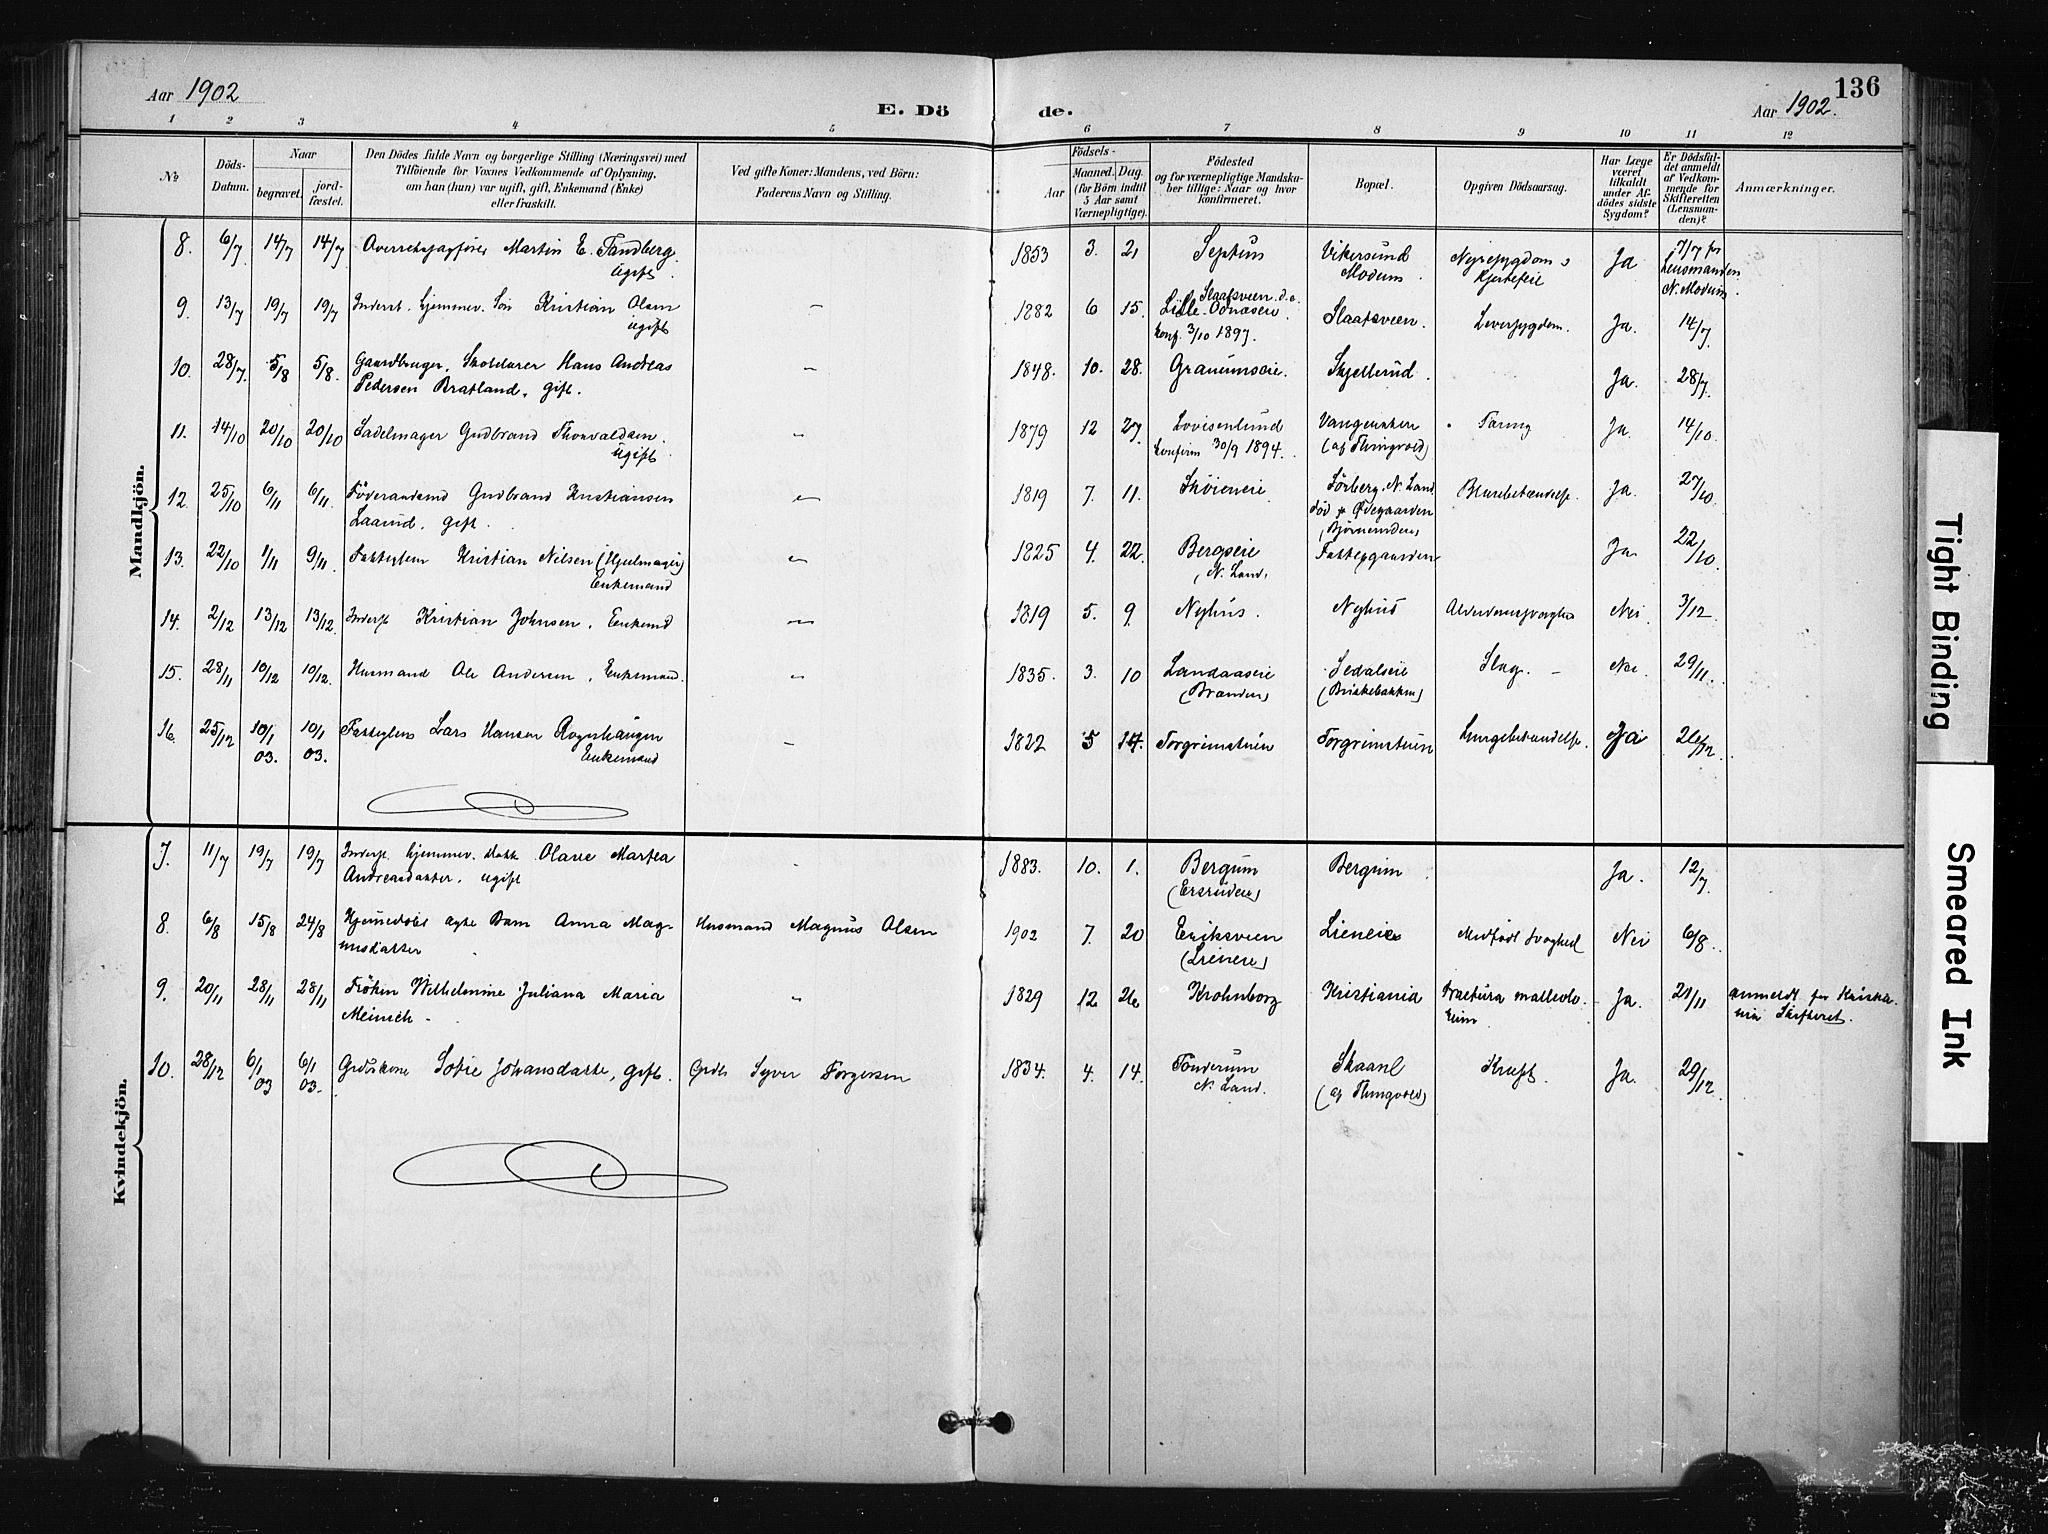 136
Aar 1902
E. Dö
de.
Aar 1902.
1 2 3 4 5 6 7 8 9 10 11 12
No
Döds-
Datum.
Naar
begravet.
jord-
fæstet.
Den Dödes fulde Navn og borgerlige Stilling (Næringsvei) med
Tilföiende for Voxnes Vedkommende af Oplysning,
om han (hun) var ugift, gift, Enkemand (Enke)
eller fraskilt.
Ved gifte Koner: Mandens, ved Börn:
Faderens Navn og Stilling.
Födsels-
Aar
Maaned. Dag.
(for Börn indtil
5 Aar samt
Værnepligtige).
Födested
og for værnepligtige Mandska-
ber tillige: Naar og hvor
konfirmeret.
Bopæl.
Opgiven Dödsaarsag.
Har Læge
været
tilkaldt
under Af-
dödes sidste
Sygdom?
Er Dödsfal-
det anmeldt
af Vedkom-
mende for
Skifteretten
(Lensman-
den)?
Anmærkninger.
Mandkjön.
8. 6/7 14/7 14/7 Overretssagfører Martin E. Tandberg. 1853 3. 21 Septun Vikersund Nyresygdom & Ja 7/7 for
ugift. Modum. Hjertefeil Lensmanden
N. Modum.
9. 13/7 19/7 19/7 Inderst. hjemmev. Søn Kristian Olsen – 1882 6 15. Slaatsveen. d.e. Slaatsveen. Leversygdom. Ja. 14/7
ugift Lille-Odnæseie.
konf. 3/10 1897.
10. 28/7. 5/8 5/8. Gaardbruger, Skolelærer Hans Andreas 1848. 10. 28. Skjellerud. Ja. 28/7
Pedersen Bratland, gift.
11. 14/10 20/10 20/10 Sadelmager Gudbrand Thorvaldsen. 1879 12 27. Lovisenlund Ja. 14/10.
ugift. konfirm 30/9 1894. (af Thingvold)
12. 25/10 6/11 6/11. Föderaadsmd Gudbrand Kristiansen 1819 7. 11. Skøieneie. Sörberg, N. Land Ja. 27/10
gift. död p. Ødegaarden
13. 22/10 1/11 9/11. Fattiglem Kristian Nilsen (Hjulmager) 1825 4. 22. Bergseie Fattiggaarden Ja. 22/10.
Enkemand (N. Land)
14. 2/12 13/12 13/12. Inderst Kristian Johnsen, Enkemd 1819 5. 9. Nyhus. Nyhus Alderdomssvaghed Nei 3/12.
15. 28/11 10/12 10/12. Husmand Ole Andersen, Enkemand. 1835. 3. 10 Landaaseie Sedalseie Slag. – Nei 29/11.
(Branden) (Birkebakken)
16. 25/12 10/1 03. 10/1 03. Fattiglem Lars Hansen – 1822 5 14. Torgrimstuen Torgrimstuen Lungebetændelse. Ja 26/12.
Enkemand
Kvindekjön.
7. 11/7 19/7 19/7 Inderst. hjemmev. Olave Martea 1883. 10. 1. Bergum Bergum Ja. 12/7.
Andreasdatter. ugift
8. 6/8 15/8 24/8 Hjemmedøbt ægte Barn Anna Mag- Husmand Magnus Olsen 1902 7. 20 Eriksveen Lieneie Medfødt svaghed Nei 6/8.
nusdatter (Lieneie)
9. 20/11 28/11 28/11 Frøken Wilhelmine Juliana Maria 1829 12 26 Krohnborg Kristiania Fractura malleolo- Ja. 21/11 anmeldt for Kristia-
Meinich – rum. nia Skifteret.
10. 28/12 6/1 03 6/1 03. Sofie Johansdatter, gift. Syver Torgersen 1834. 4. 14. Tonderum Skaanl Kræft. Ja. 29/12
N. Land. (af Thingvold)
Tight Binding
Smeared Ink